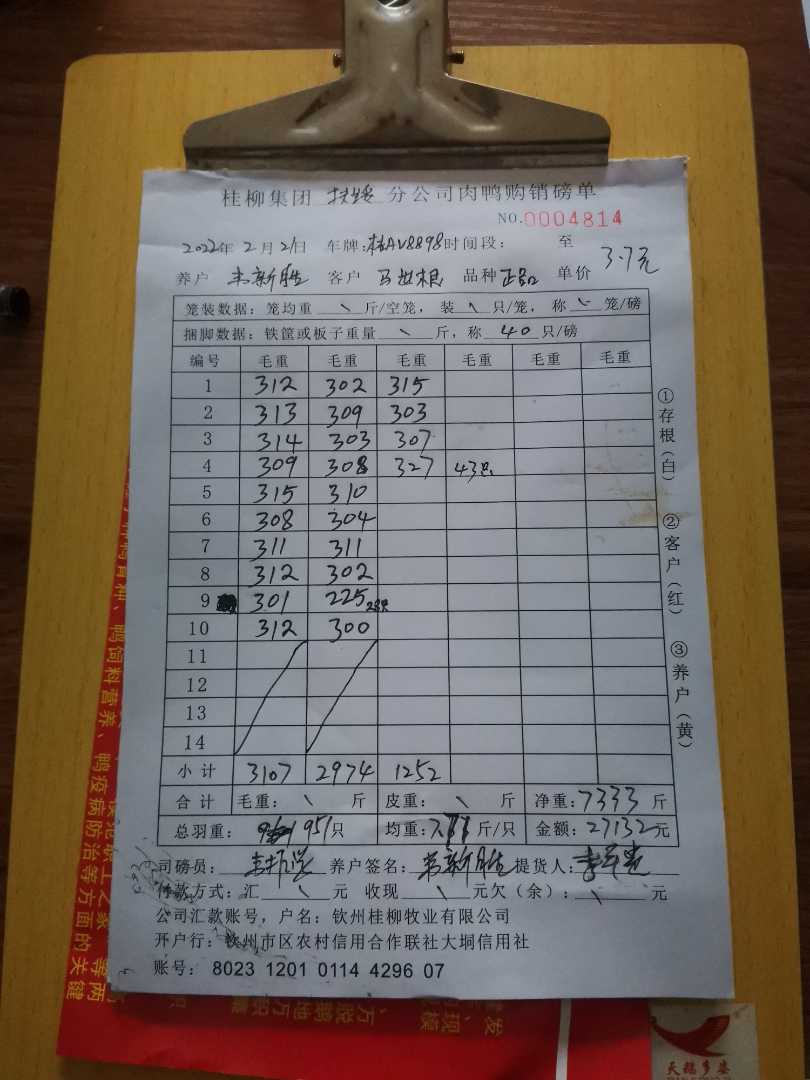 桂柳集团 扶绥 分公司肉鸭购销磅单
NO.0004814
2022年 2月 21日 车牌:桂AV8898 时间段: 至
养户 韦新胜 客户 马世根 品种 正品 单价 3.7元
笼装数据:笼均重 \ 斤/空笼,装 \ 只/笼,称 \ 笼/磅
捆脚数据:铁筐或板子重量 \ 斤,称 40 只/磅
编号 毛重 毛重 毛重 毛重 毛重 毛重
1 312 302 315
2 313 309 303
3 314 303 307
4 309 308 327 43只
5 315 310
6 308 304
7 311 311
8 312 302
9 301 225 28只
10 312 300
11
12
13
14
小计 3107 2974 1252
合计 毛重: \ 斤 皮重: \ 斤 净重:7333 斤
总羽重: 951只 均重: 斤/只 金额:27132元
司磅员: 养户签名:韦新胜 提货人:
付款方式:汇 \ 元 收现 \ 元欠(余): \ 元
公司汇款账号,户名:钦州桂柳牧业有限公司
开户行:钦州市区农村信用合作联社大垌信用社
账号: 8023 1201 0114 4296 07
①存根(白)
②客户(红)
③养户(黄)
鸭饲料营养、鸭疫病防治等方面的关键
天福多姿